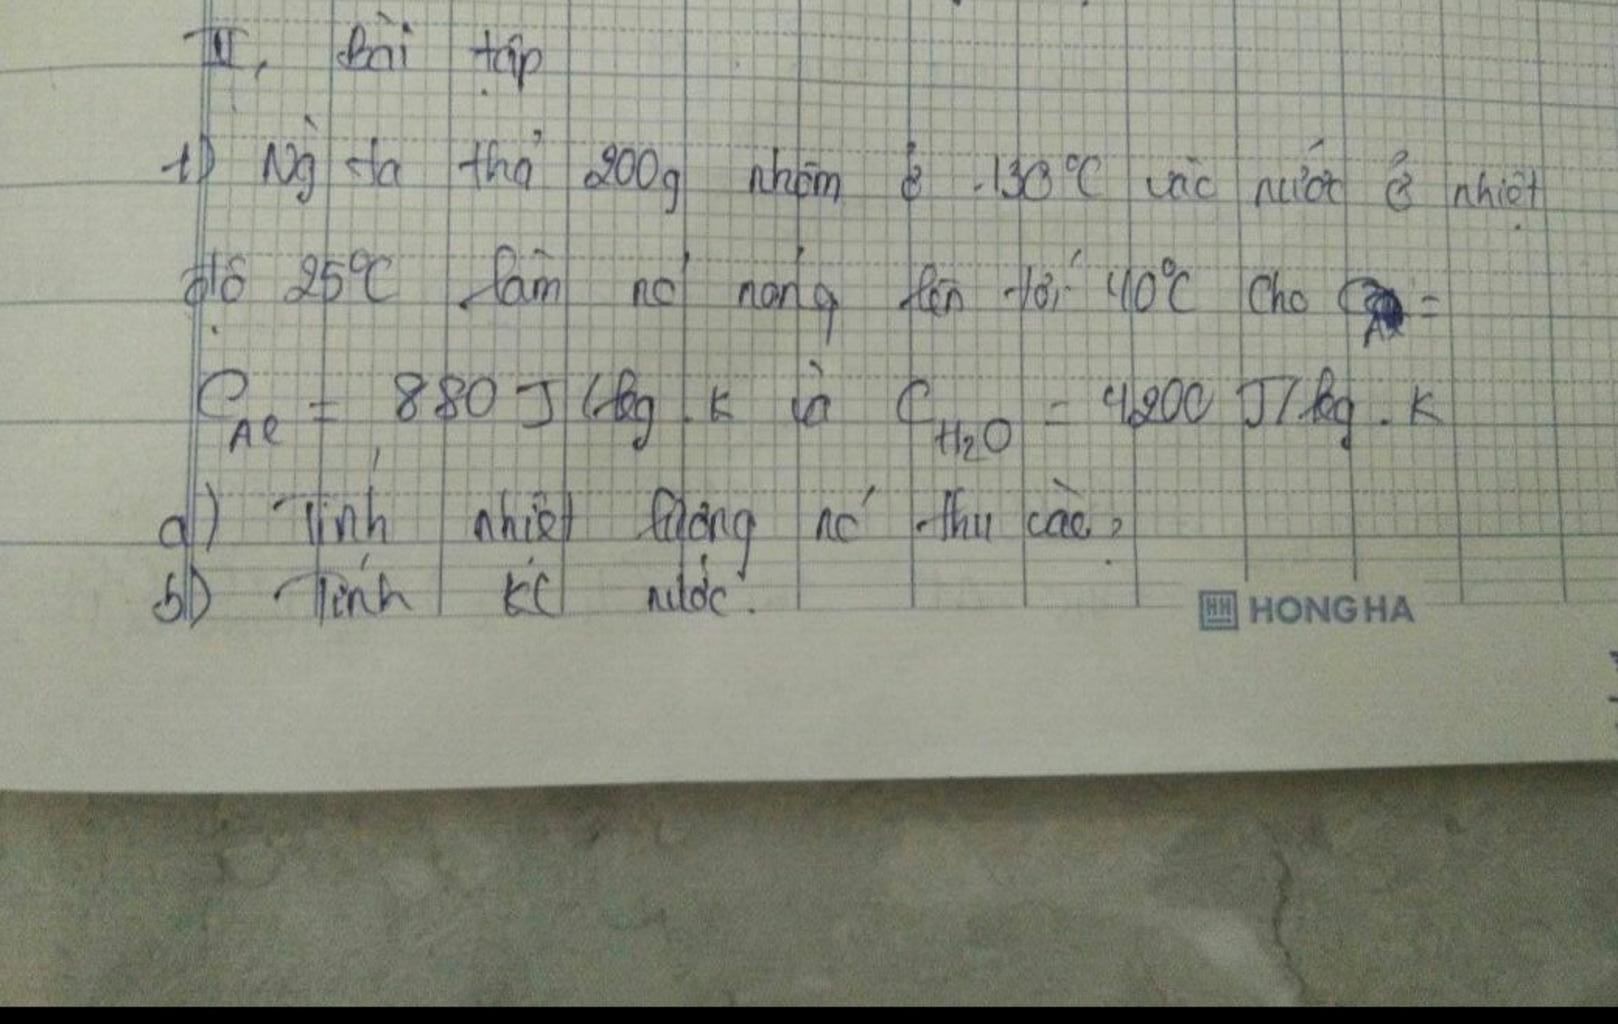 II, Bài tập
1) Ng ta thả 200g nhôm ở 130°C vào nước ở nhiệt
độ 25°C làm nó nóng lên tới 40°C Cho C =
C Al = 880 J/kg.K và C H₂O = 4200 J/kg.K
a) Tính nhiệt lượng nc thu vào,
b) Tính KL nước.
HONG HA